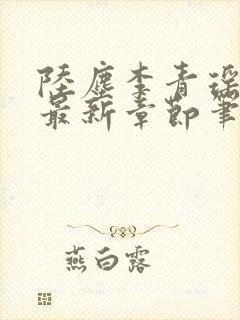 陸塵李青瑶
最新章節筆
燕白露